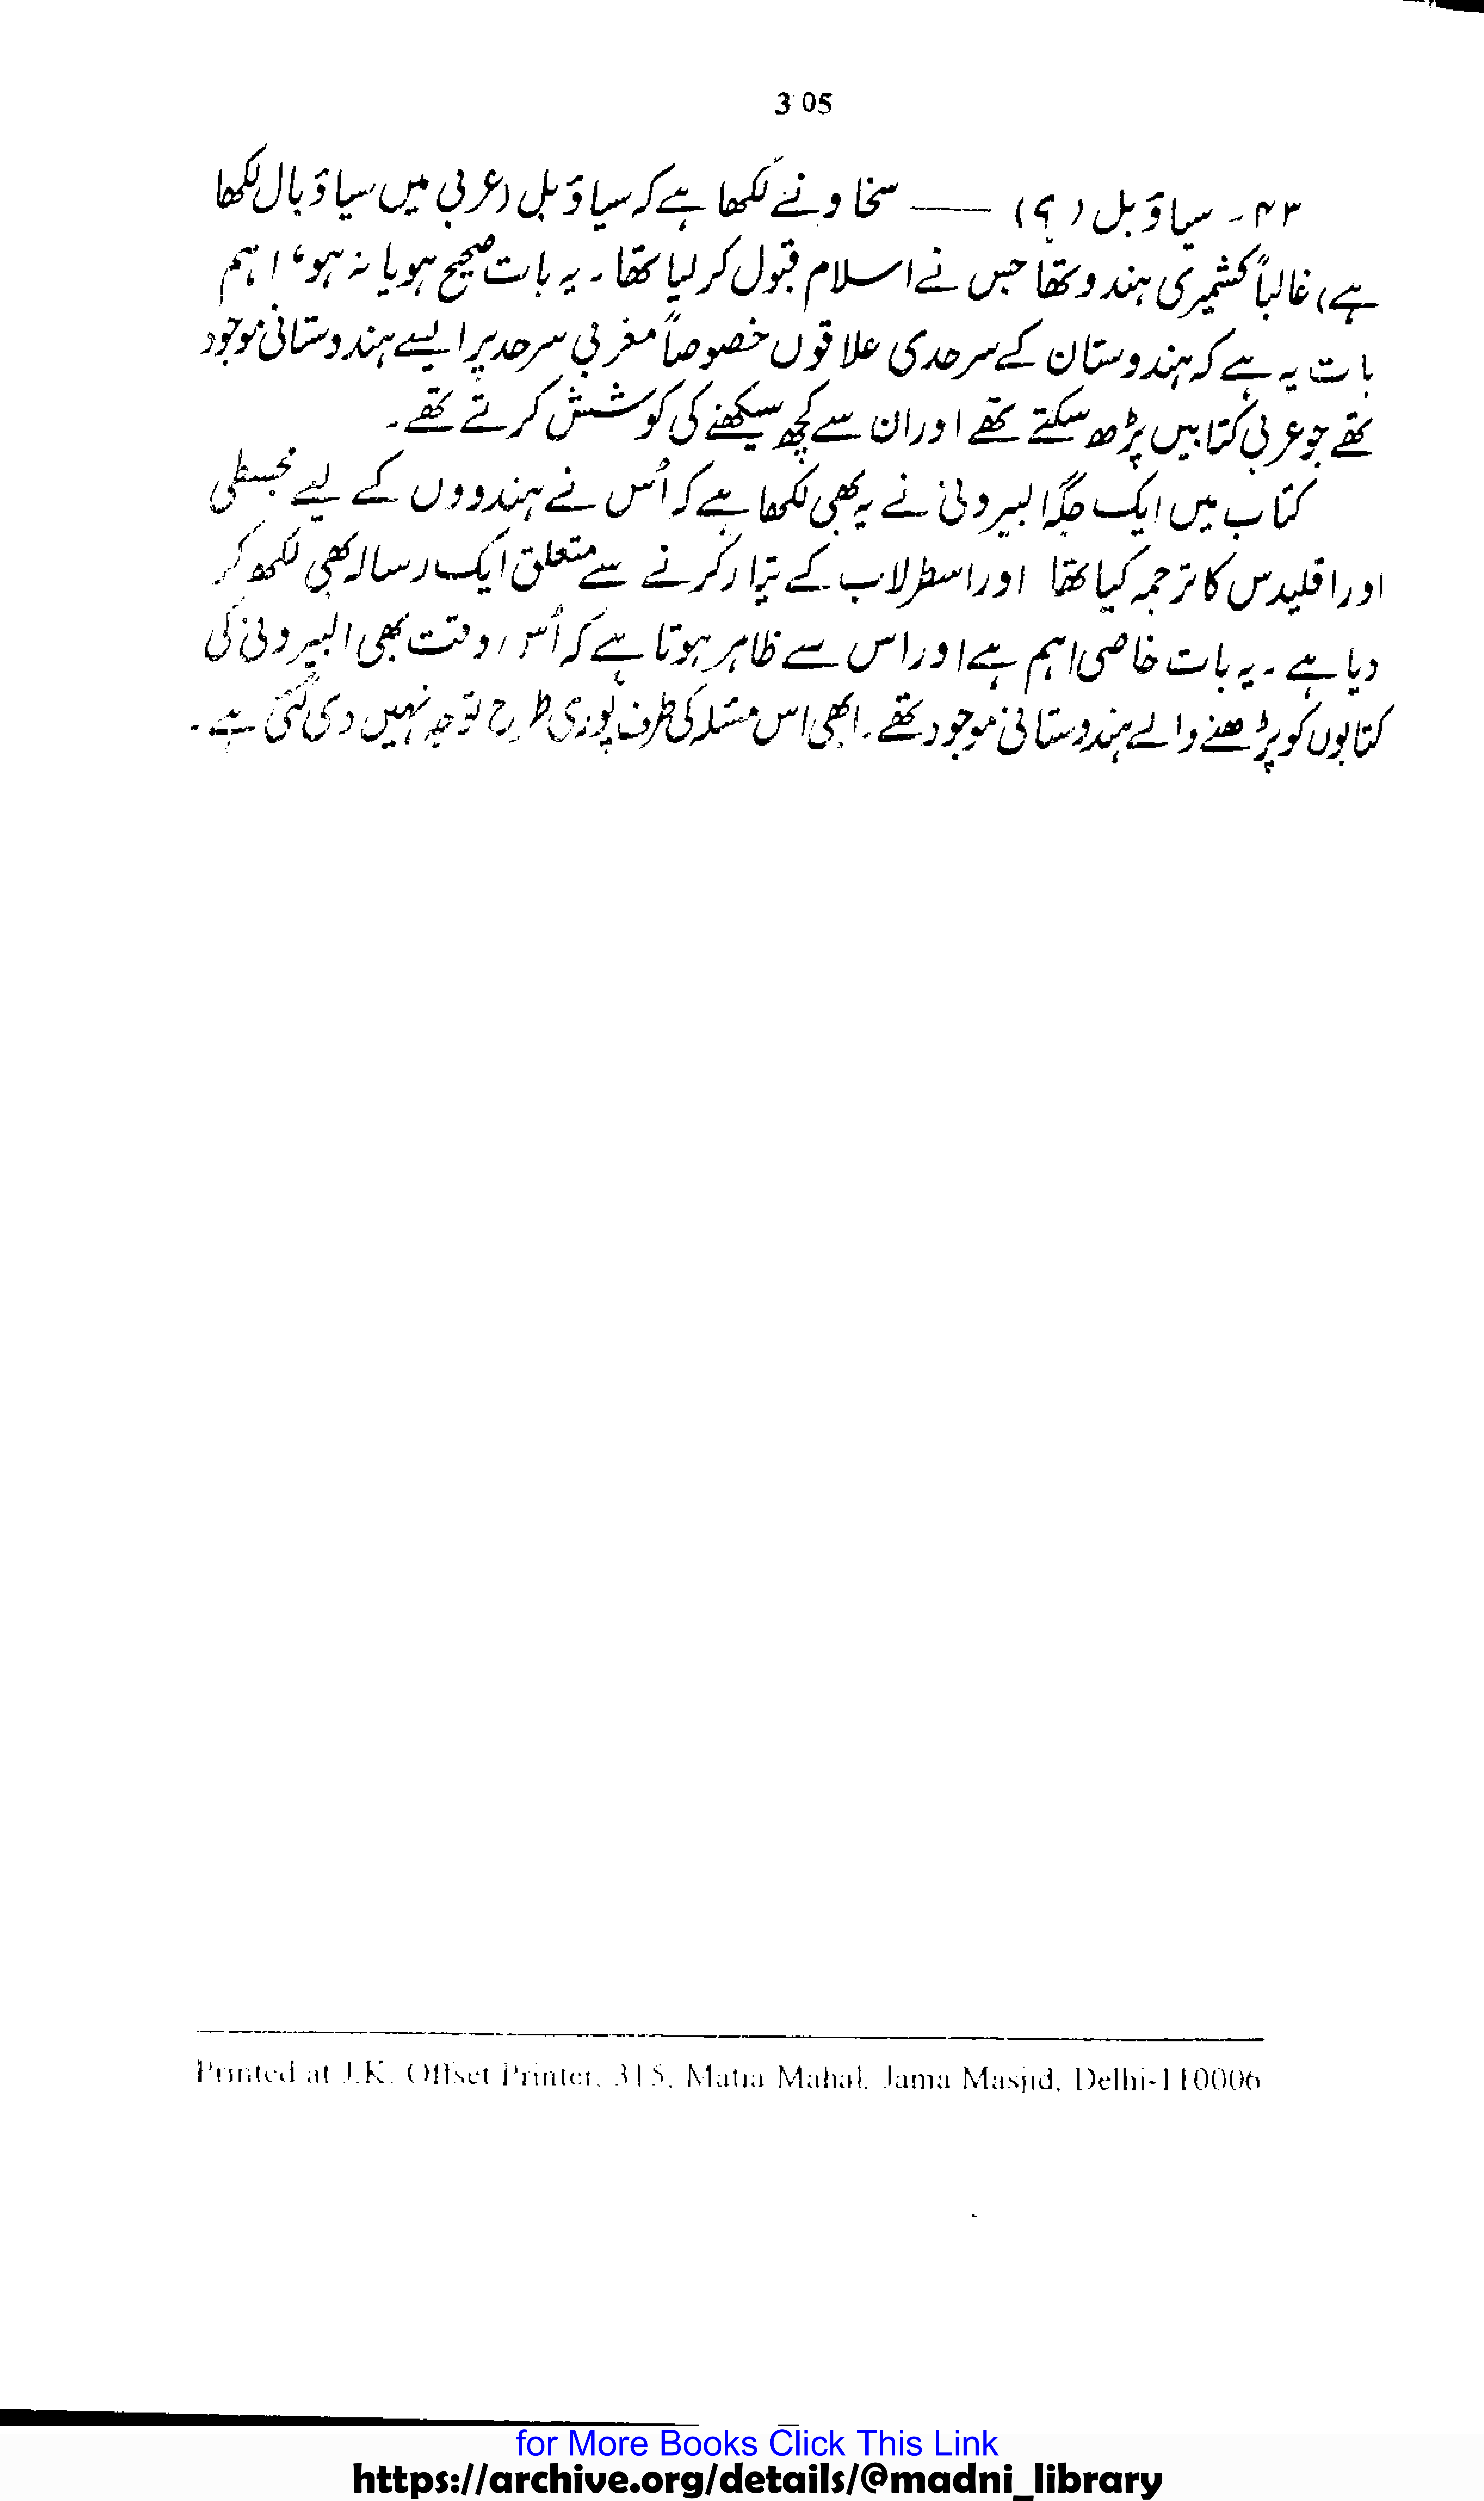 3 05
۴۳ - سیاوَبل (؟) —— سخاو نے لکھا ہے کہ سیاوَبل (عربی میں سیاوَبال لکھا
ہے) غالباً کشمیری ہندو تھا جس نے اسلام قبول کر لیا تھا ۔ یہ بات صحیح ہو یا نہ ہو، اہم
بات یہ ہے کہ ہندوستان کے سرحدی علاقوں خصوصاً مغربی سرحد پر ایسے ہندوستانی موجود
تھے جو عربی کتابیں پڑھ سکتے تھے اور ان سے کچھ سیکھنے کی کوشش کرتے تھے ۔
کتاب میں ایک جگہ البیرونی نے یہ بھی لکھا ہے کہ اُس نے ہندووں کے لیے مجسطی
اور اقلیدس کا ترجمہ کیا تھا اور اسطرلاب کے تیار کرنے سے متعلق ایک رسالہ بھی لکھ کر
دیا ہے ۔ یہ بات خاصی اہم ہے اور اس سے ظاہر ہوتا ہے کہ اُس وقت بھی البیرونی کی
کتابوں کو پڑھنے والے ہندوستانی موجود تھے ۔ ابھی اس مسئلہ کی طرف پوری طرح توجہ نہیں دی گئی ہے ۔
Printed at J.K. Offset Printer, 315, Matia Mahal, Jama Masjid, Delhi-110006
for More Books Click This Link
https://archive.org/details/@madni_library